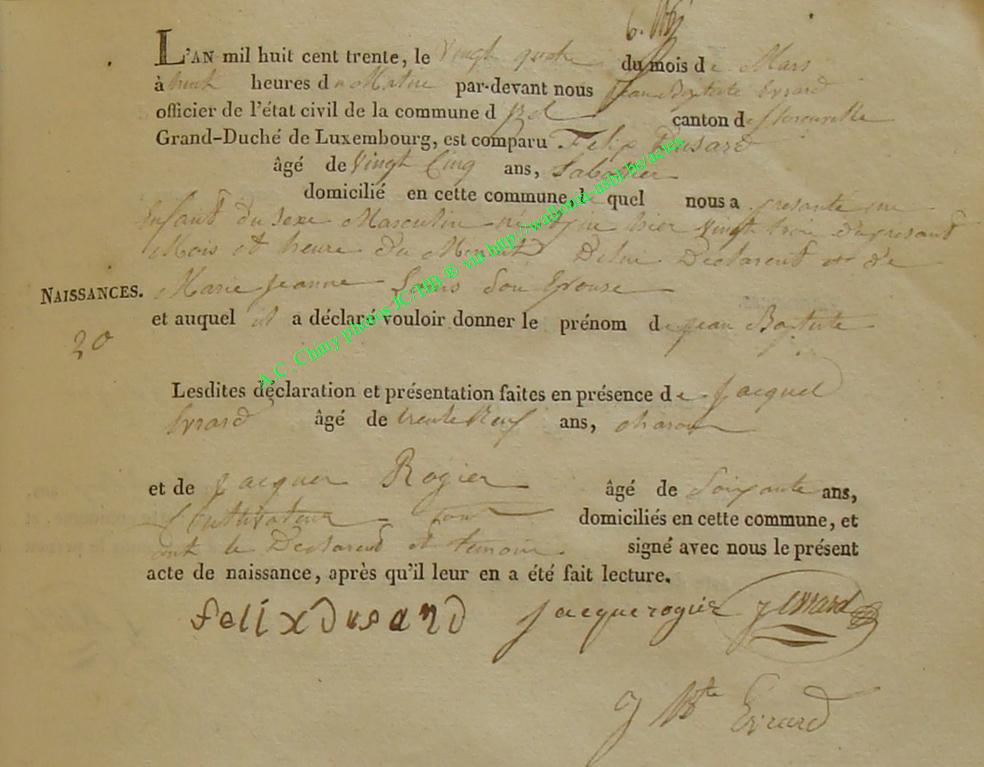 L'AN mil huit cent trente, le vingt quatre du mois de Mars
à huit heures du Matin par-devant nous Jean Baptiste Evrard
officier de l'état civil de la commune d canton de florenville
Grand-Duché de Luxembourg, est comparu Felix Dusard
âgé de Vingt Cinq ans,
domicilié en cette commune, l quel nous a presanté un
Enfant du Sexe Masculin né hier vingt trois du presant
Mois et heure du Declarent et de
NAISSANCES. Marie Jeanne Son Epouse
et auquel il a déclaré vouloir donner le prénom de Jean Baptiste
20
Lesdites déclaration et présentation faites en présence de Jacque
Evrard âgé de trente Neuf ans, charon
et de Jacque Rogier âgé de Soixante ans,
Cultivateur domiciliés en cette commune, et
ont le Declarent et temoin signé avec nous le présent
acte de naissance, après qu'il leur en a été fait lecture.
felix Dusard jacque rogier J Evrard
J Bte Evrard
A.C. Chiny photos JC/THB ® via http://wallonia-asbl.be/actes